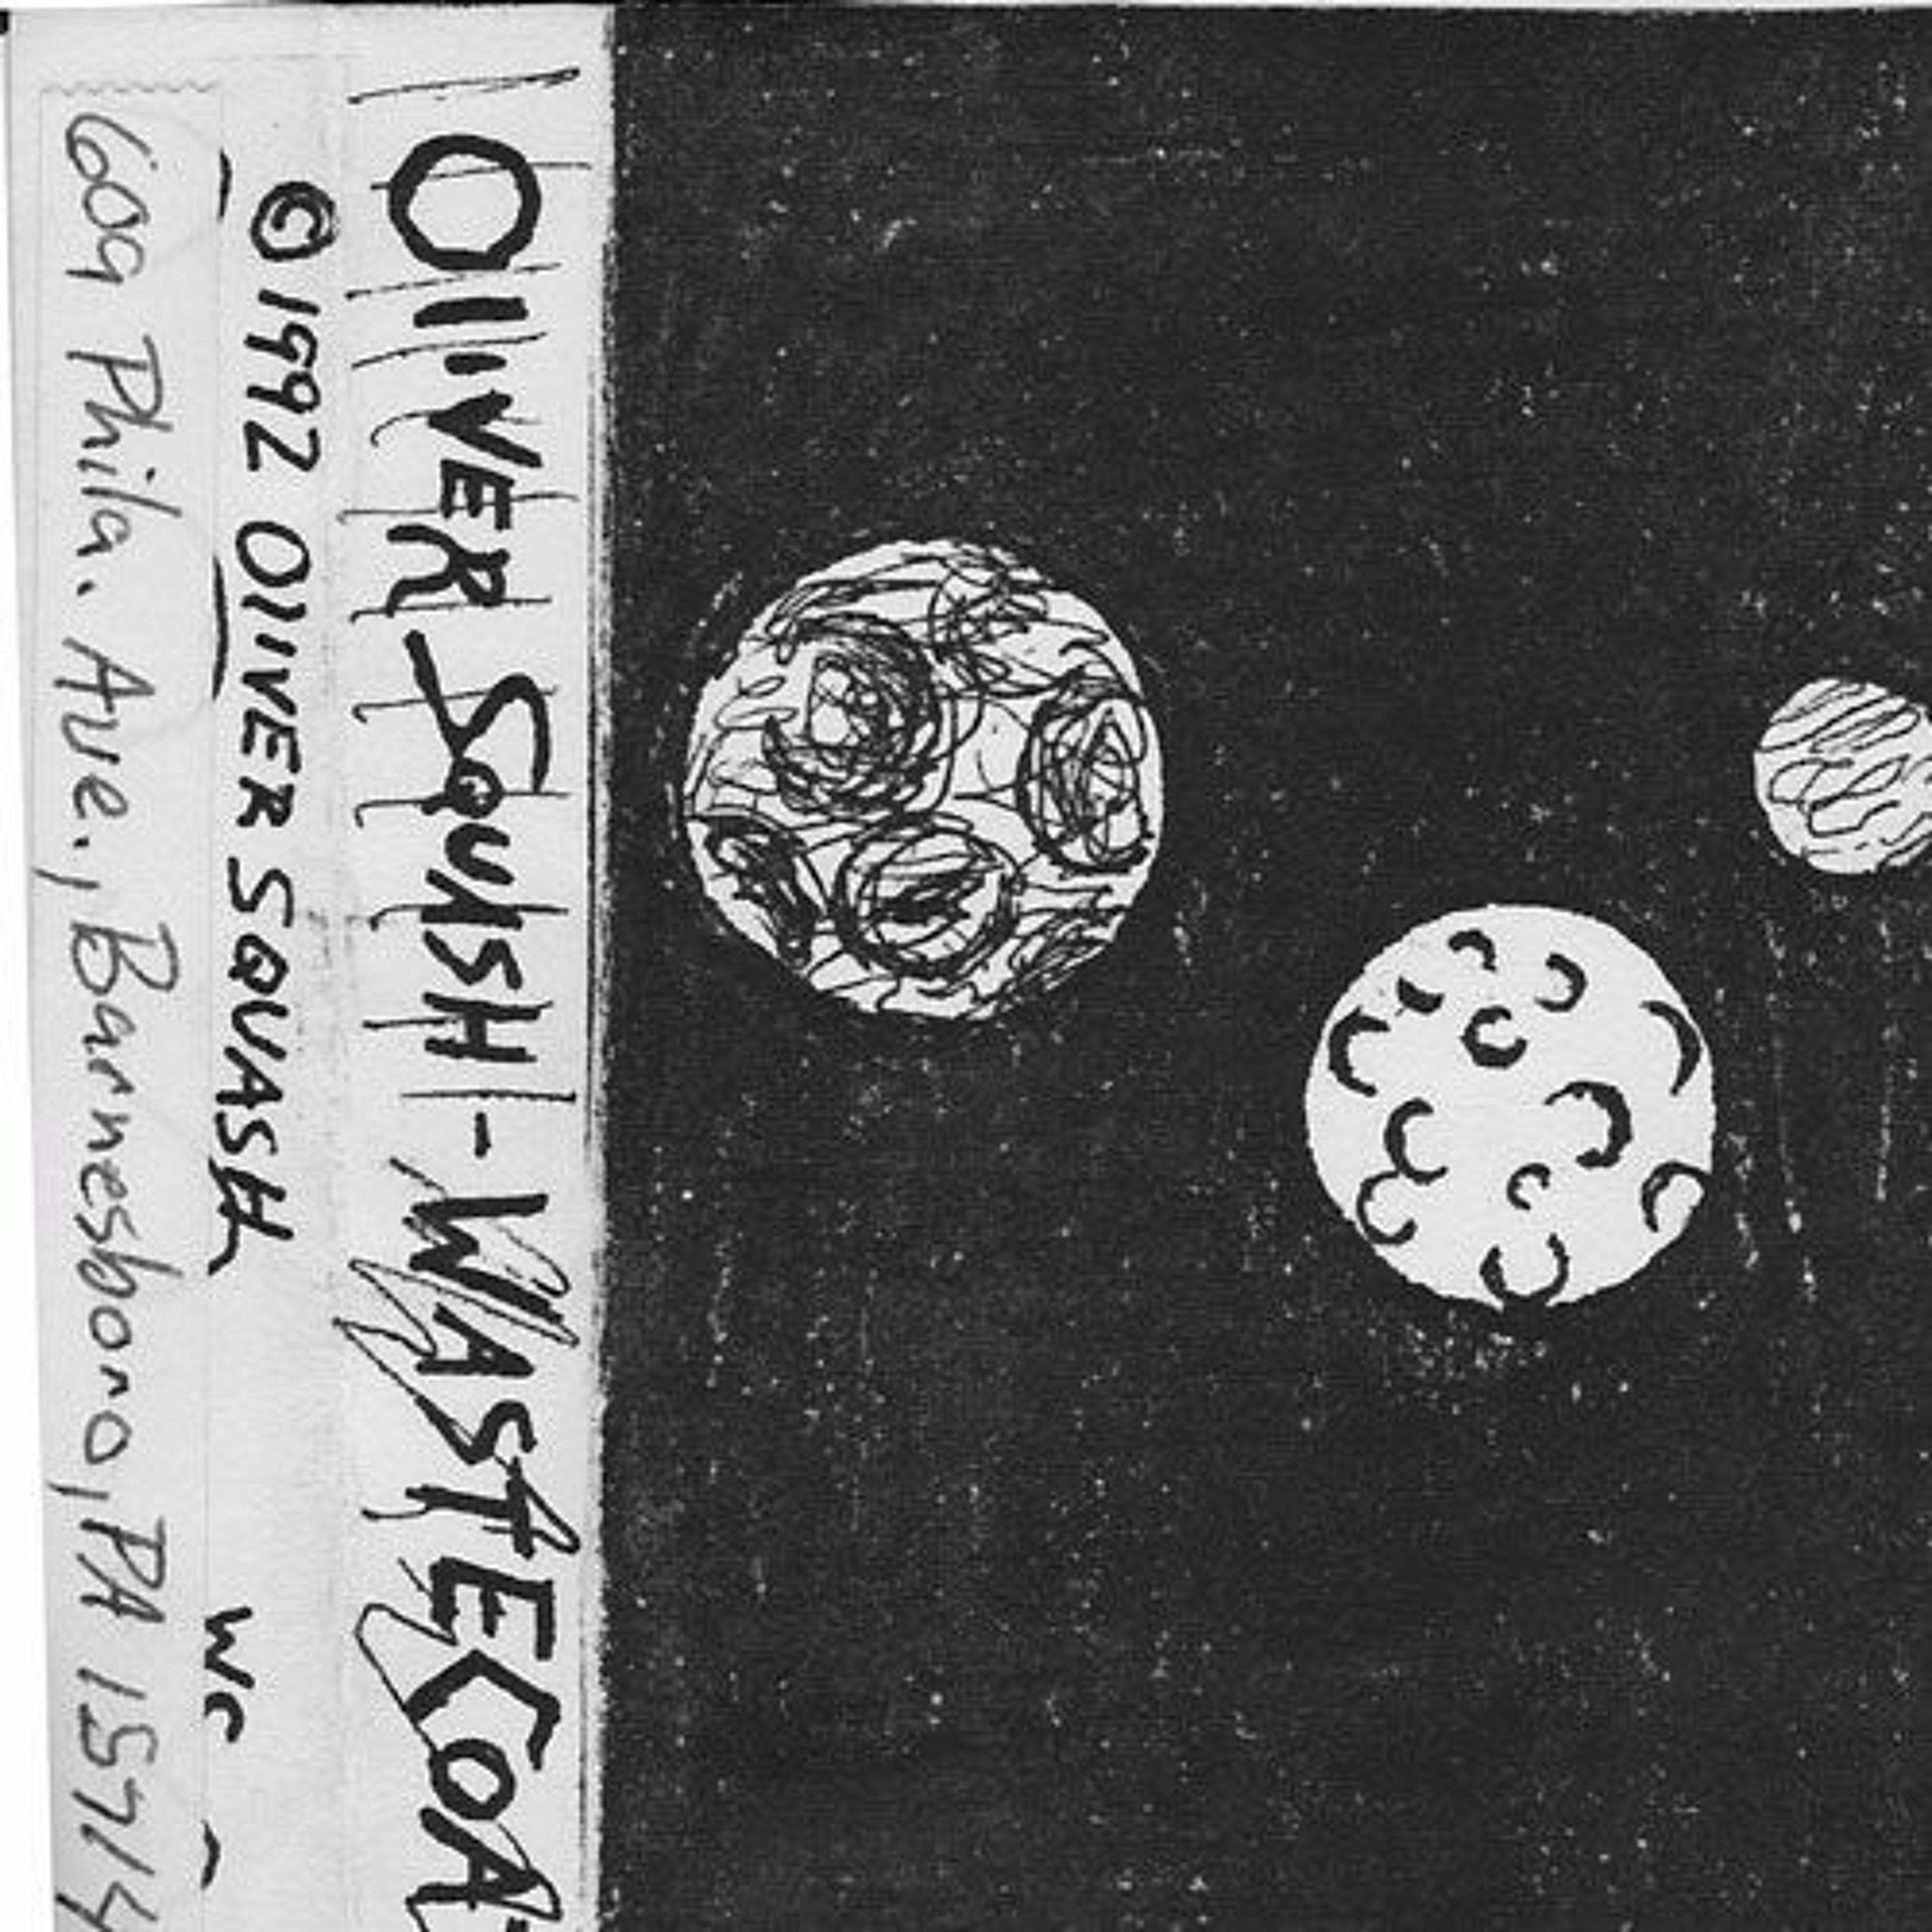 OlIVER SQUISH - WASTECOA
© 1992 OlIVER SQUASH
609 Phila. Ave., Barnesboro, PA 15714